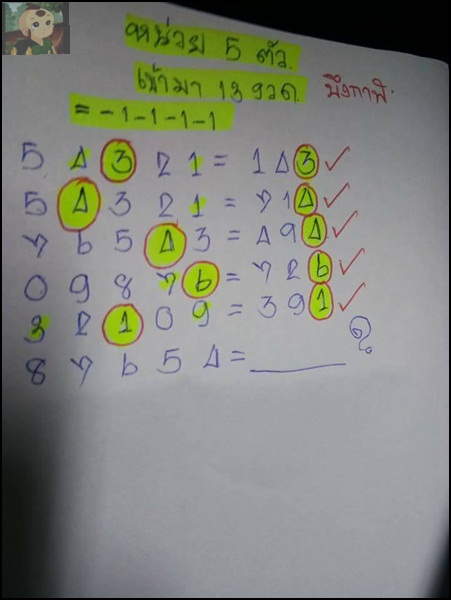 หน่วย 5 ตัว.
เข้ามา 13 งวด. บึงกาฬ.
= -1-1-1-1
5 4 3 2 1 = 1 4 3 ✓
5 4 3 2 1 = 7 1 4 ✓
7 6 5 4 3 = 4 9 4 ✓
0 9 8 7 6 = 7 2 6 ✓
3 2 1 0 9 = 3 9 1 ✓
8 7 6 5 4 = ______ ดู